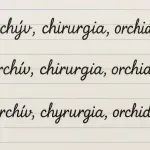 chýv, chirurgia, orchid
rchív, chirurgia, orchid
rchív, chyrurgia, orchid